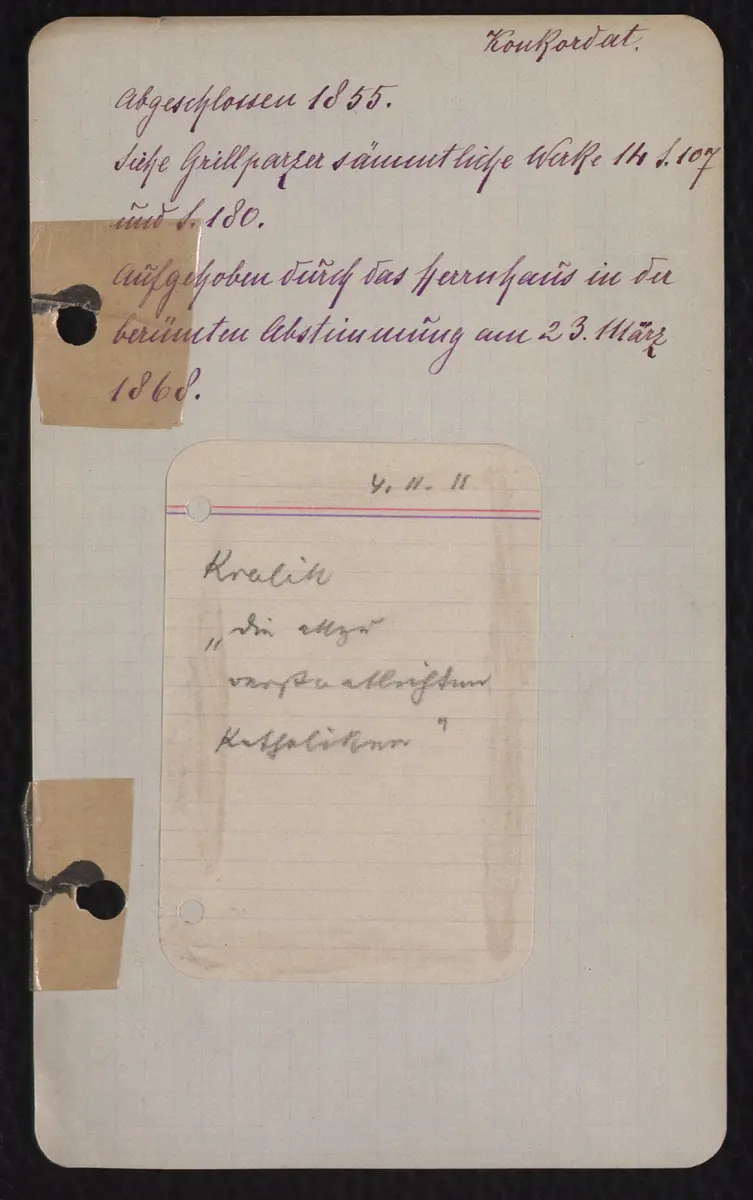 Konkordat.
Abgeschlossen 1855.
Siehe Grillparzer sämmtliche Werke 14 S. 107
und S. 180.
Aufgehoben durch das Herrnhaus in der
berümten Abstimmung am 23. März
1868.
4. 11. 11
Kralik
„die allzu
verstaatlichten
Katholiken"